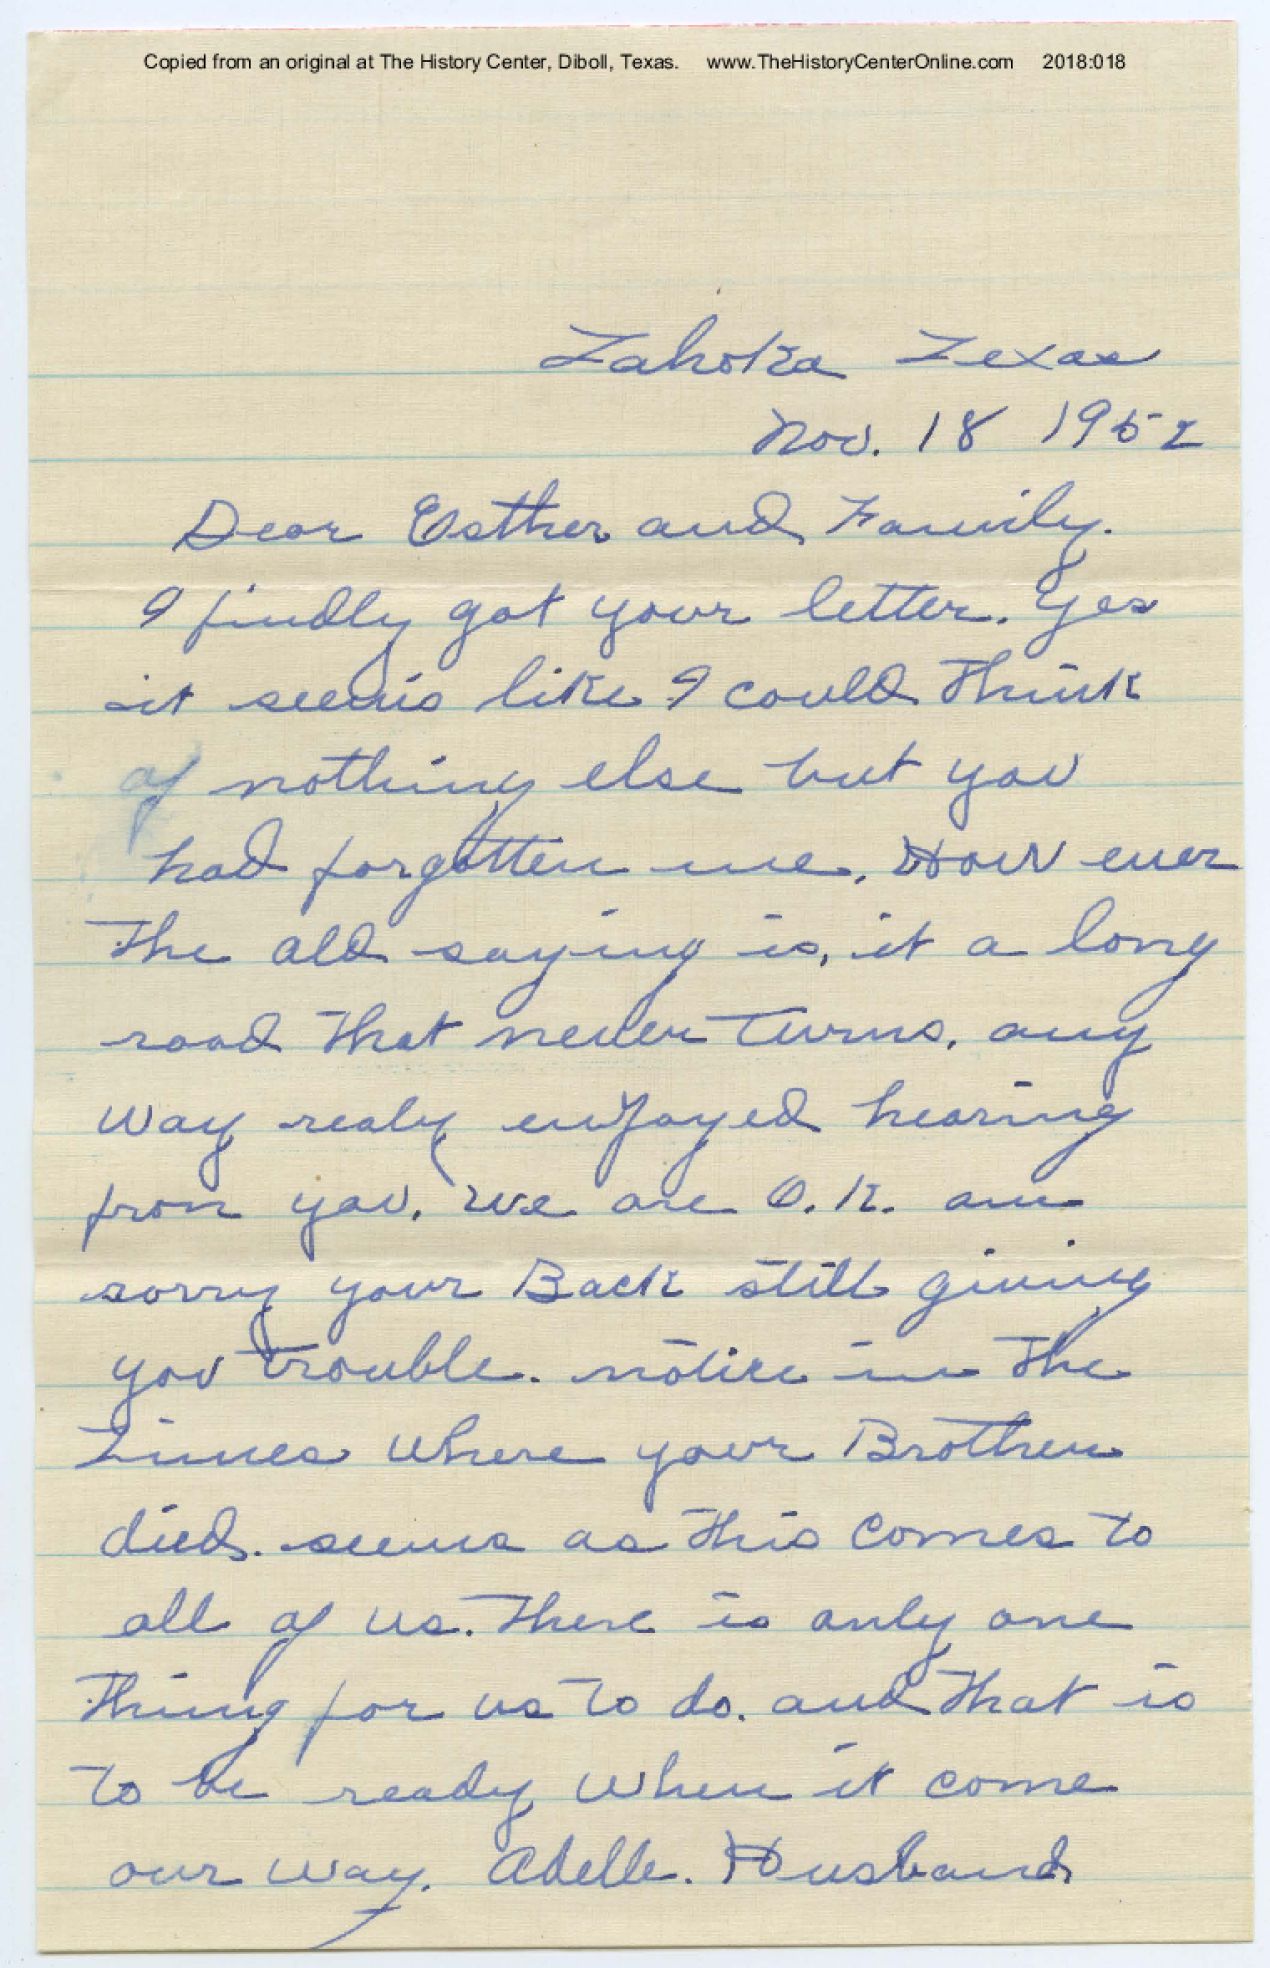 Copied from an original at The History Center, Diboll, Texas. www.TheHistoryCenterOnline.com 2018:018
Tahoka Texas
Nov. 18 1952
Dear Esther and Family.
I findly got your letter. Yes
it seems like I could think
of nothing else but you
had forgotten me. How ever
the old saying is, it a long
road that never turns. any
way realy enjoyed hearing
from you. We are O.K. am
sorry your Back still giving
you trouble. notice in the
Times where your Brother
died. seems as this comes to
all of us. There is only one
thing for us to do. and that is
to be ready when it come
our way. Adelle. Husband